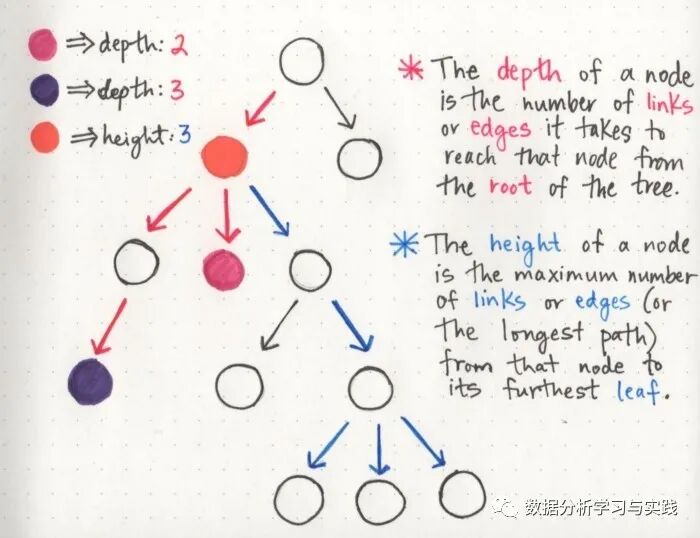 ⇒depth: 2
⇒depth: 3
⇒height: 3
* The depth of a node
is the number of links
or edges it takes to
reach that node from
the root of the tree.
* The height of a node
is the maximum number
of links or edges (or
the longest path)
from that node to
its furthest leaf.
数据分析学习与实践